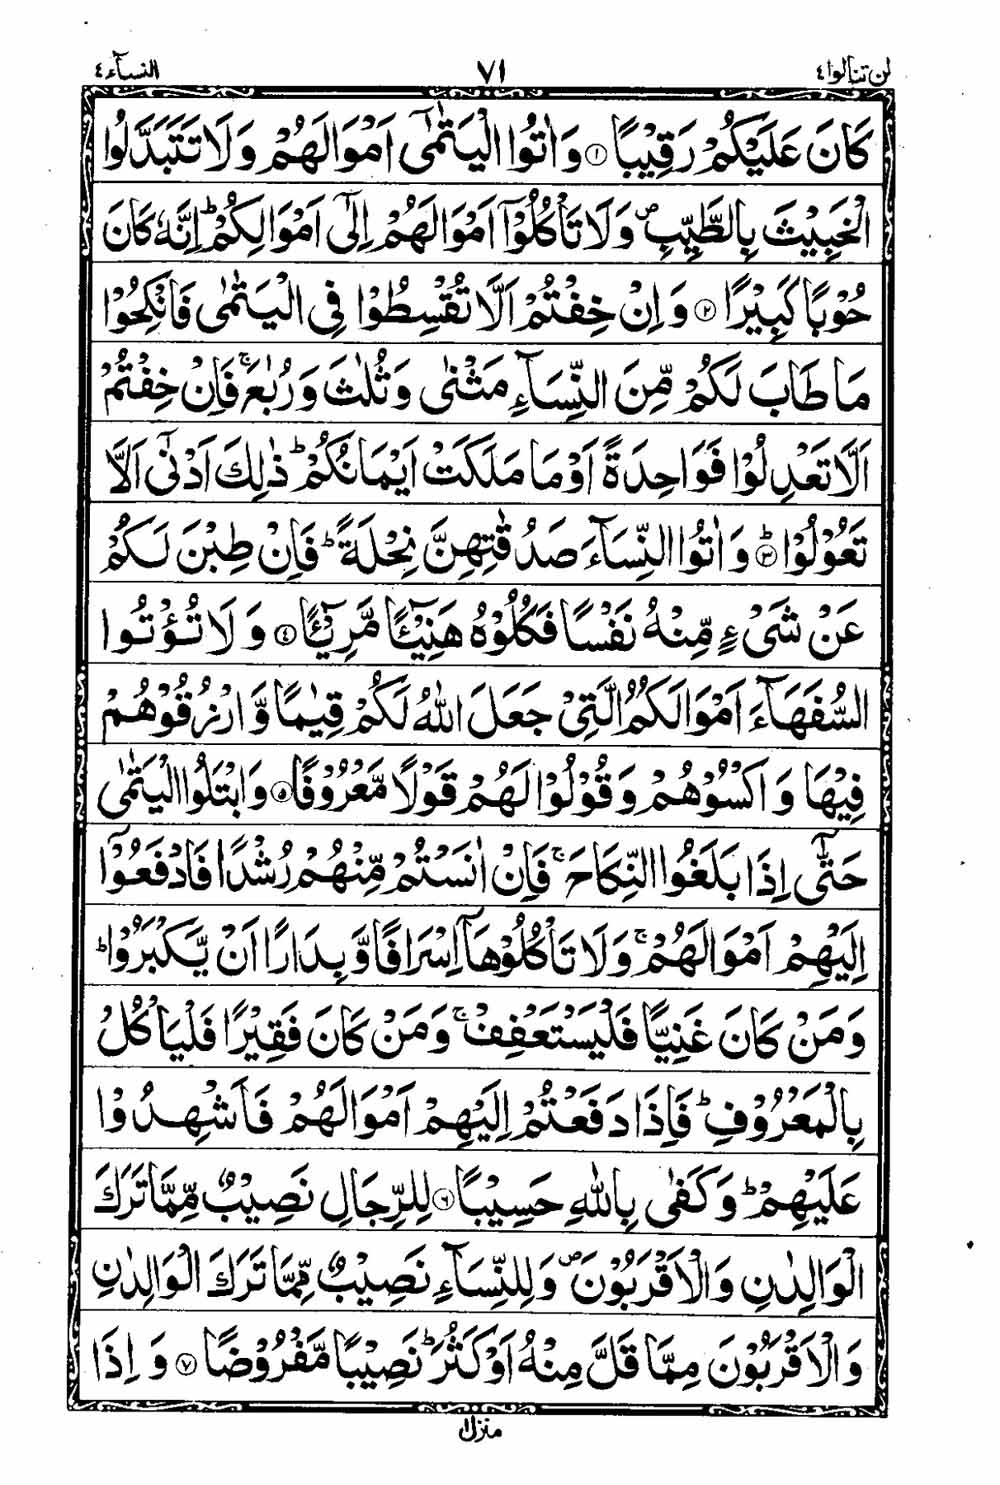 لن تنالوا ٤ ٧١ النسآء ٤
كَانَ عَلَيْكُمْ رَقِيْبًا ۝١ وَاٰتُوا الْيَتٰمٰٓى اَمْوَالَهُمْ وَلَا تَتَبَدَّلُوا
الْخَبِيْثَ بِالطَّيِّبِ ۖ وَلَا تَاْكُلُوْٓا اَمْوَالَهُمْ اِلٰٓى اَمْوَالِكُمْ ؕ اِنَّهٗ كَانَ
حُوْبًا كَبِيْرًا ۝٢ وَاِنْ خِفْتُمْ اَلَّا تُقْسِطُوْا فِى الْيَتٰمٰى فَانْكِحُوْا
مَا طَابَ لَكُمْ مِّنَ النِّسَآءِ مَثْنٰى وَثُلٰثَ وَرُبٰعَ ۚ فَاِنْ خِفْتُمْ
اَلَّا تَعْدِلُوْا فَوَاحِدَةً اَوْ مَا مَلَكَتْ اَيْمَانُكُمْ ؕ ذٰلِكَ اَدْنٰٓى اَلَّا
تَعُوْلُوْا ؕ۝٣ وَاٰتُوا النِّسَآءَ صَدُقٰتِهِنَّ نِحْلَةً ؕ فَاِنْ طِبْنَ لَكُمْ
عَنْ شَىْءٍ مِّنْهُ نَفْسًا فَكُلُوْهُ هَنِيْٓـًٔا مَّرِيْٓـًٔا ۝٤ وَلَا تُؤْتُوا
السُّفَهَآءَ اَمْوَالَكُمُ الَّتِىْ جَعَلَ اللّٰهُ لَكُمْ قِيٰمًا وَّارْزُقُوْهُمْ
فِيْهَا وَاكْسُوْهُمْ وَقُوْلُوْا لَهُمْ قَوْلًا مَّعْرُوْفًا ۝٥ وَابْتَلُوا الْيَتٰمٰى
حَتّٰٓى اِذَا بَلَغُوا النِّكَاحَ ۚ فَاِنْ اٰنَسْتُمْ مِّنْهُمْ رُشْدًا فَادْفَعُوْٓا
اِلَيْهِمْ اَمْوَالَهُمْ ۚ وَلَا تَاْكُلُوْهَآ اِسْرَافًا وَّبِدَارًا اَنْ يَّكْبَرُوْا ؕ
وَمَنْ كَانَ غَنِيًّا فَلْيَسْتَعْفِفْ ۚ وَمَنْ كَانَ فَقِيْرًا فَلْيَاْكُلْ
بِالْمَعْرُوْفِ ؕ فَاِذَا دَفَعْتُمْ اِلَيْهِمْ اَمْوَالَهُمْ فَاَشْهِدُوْا
عَلَيْهِمْ ؕ وَكَفٰى بِاللّٰهِ حَسِيْبًا ۝٦ لِلرِّجَالِ نَصِيْبٌ مِّمَّا تَرَكَ
الْوَالِدٰنِ وَالْاَقْرَبُوْنَ ۖ وَلِلنِّسَآءِ نَصِيْبٌ مِّمَّا تَرَكَ الْوَالِدٰنِ
وَالْاَقْرَبُوْنَ مِمَّا قَلَّ مِنْهُ اَوْ كَثُرَ ؕ نَصِيْبًا مَّفْرُوْضًا ۝٧ وَاِذَا
منزل ١